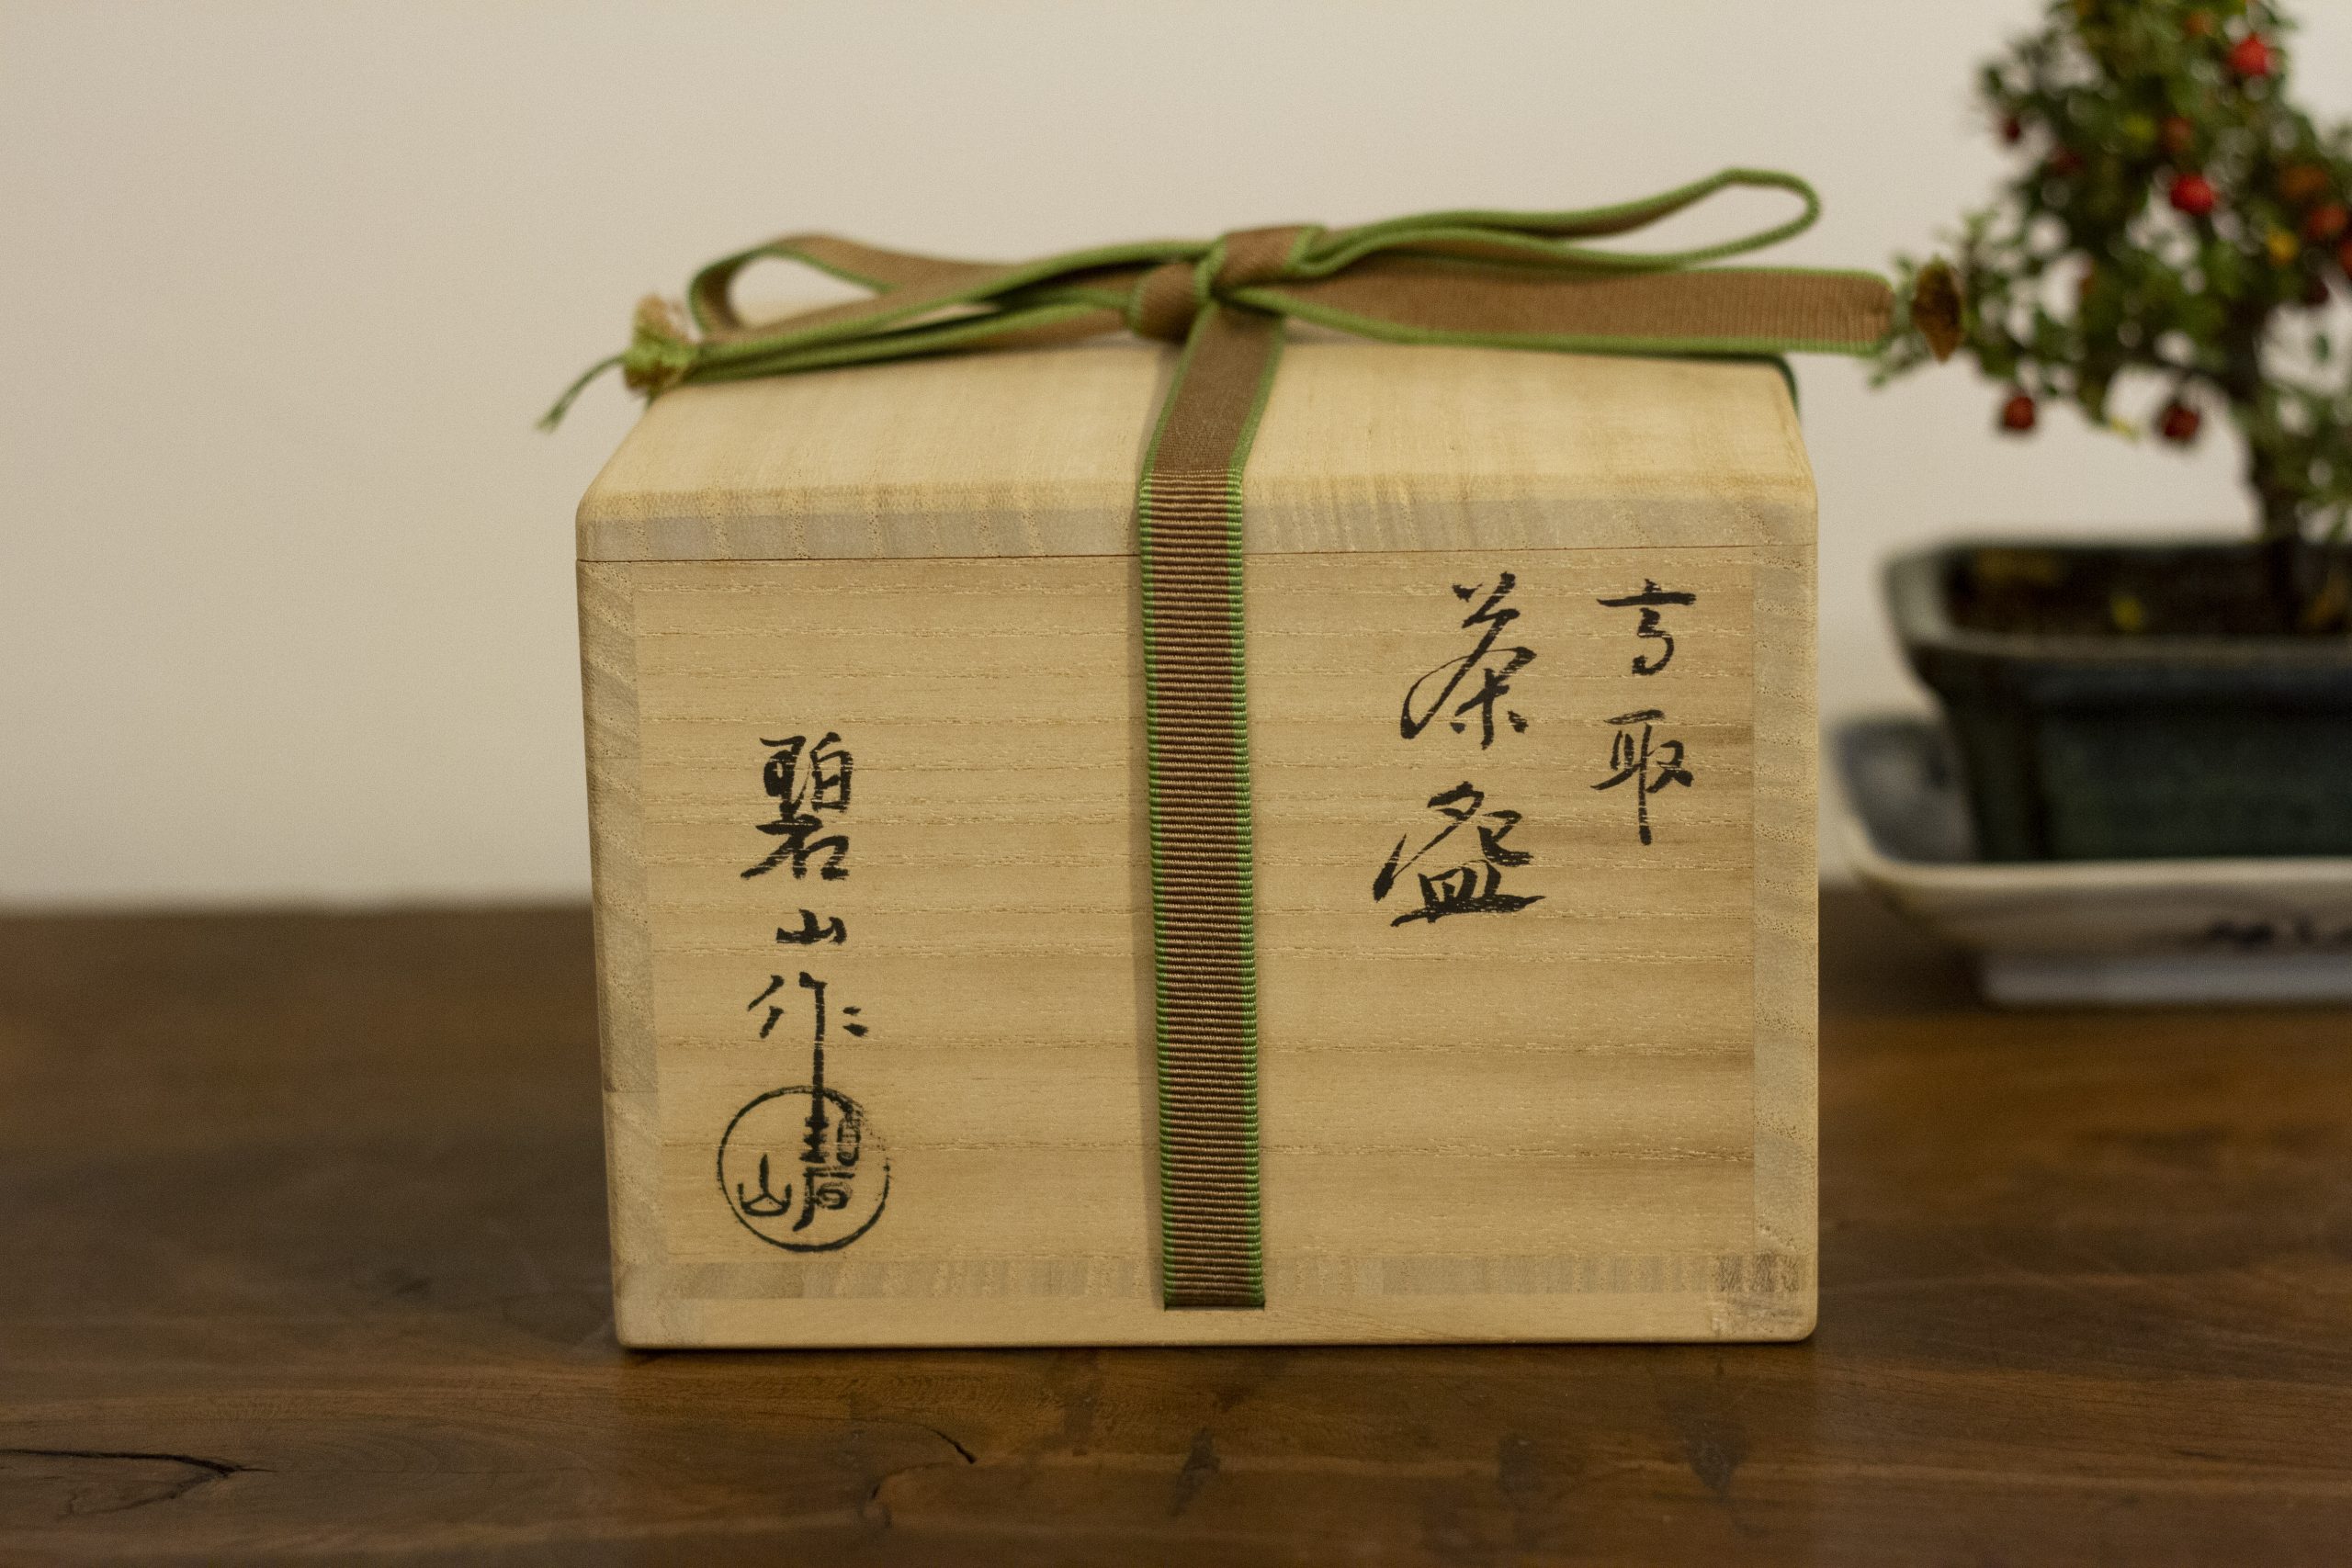 高取
茶盌
碧山作
碧山